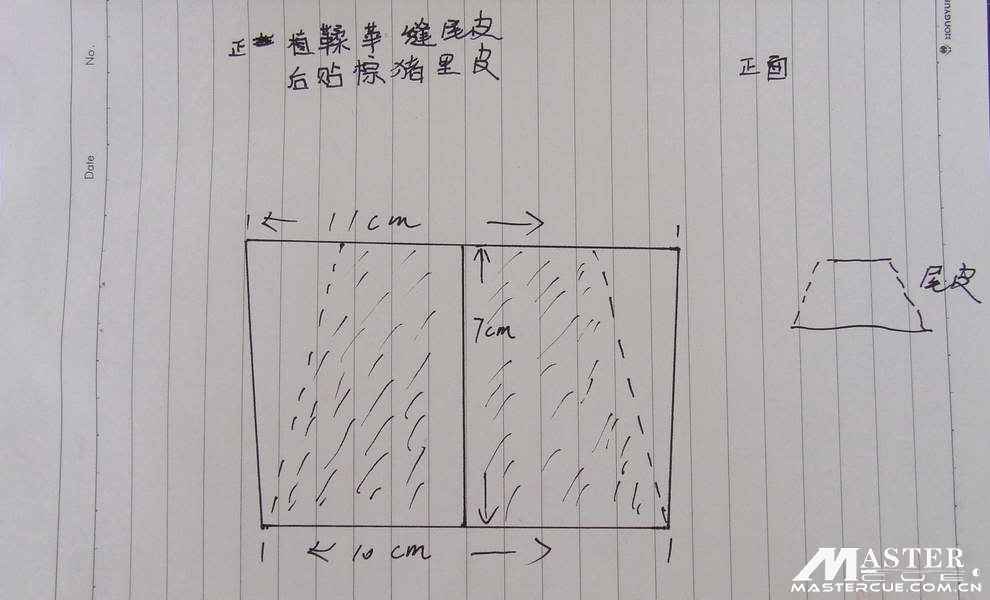 正 植鞣革 缝尾皮
后贴棕猪里皮
正面
11cm
7cm
10cm
尾皮
No.
Date
MASTER
CUE
MASTERCUE.COM.CN